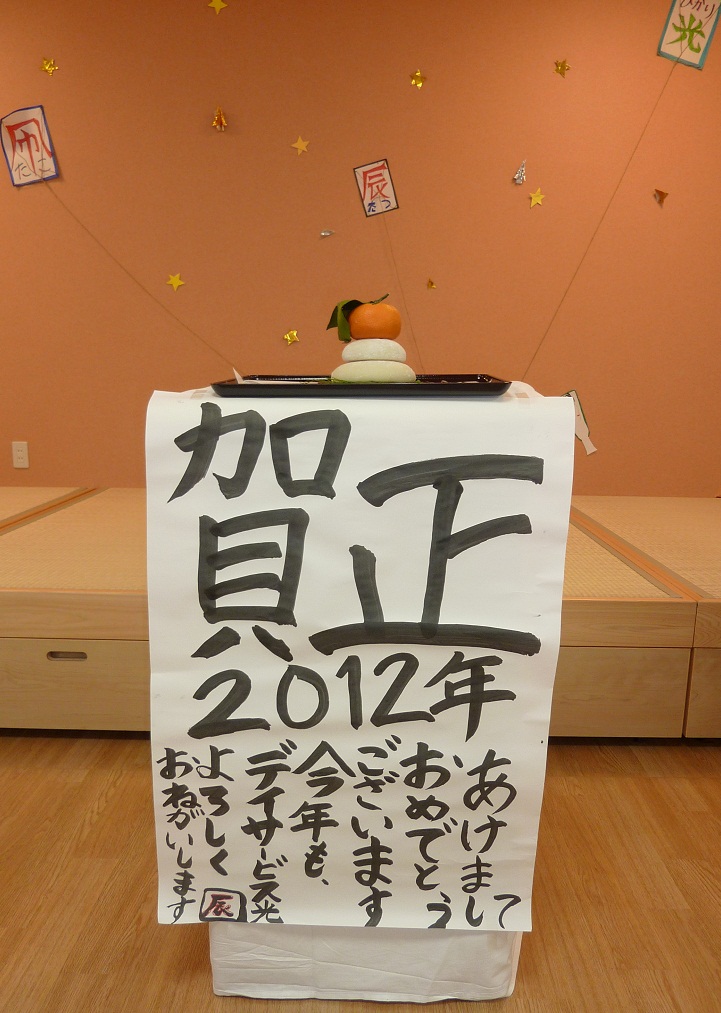 凧
たこ
辰
たつ
ひかり
光
正賀
2012年
あけまして
おめでとう
ございます
今年も、
デイサービス光
よろしく
おねがいします
辰